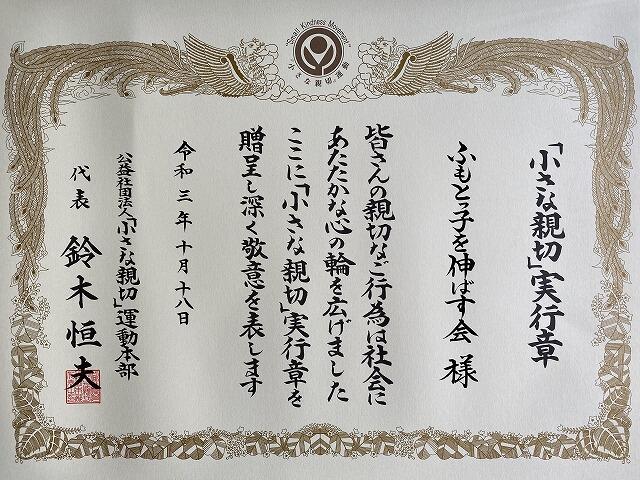 "Small Kindness Movement"
小さな親切運動
「小さな親切」実行章
ふもとっ子を伸ばす会 様
皆さんの親切なご行為は社会に
あたたかな心の輪を広げました
ここに「小さな親切」実行章を
贈呈し深く敬意を表します
令和三年十月十八日
公益社団法人「小さな親切」運動本部
代表 鈴木恒夫